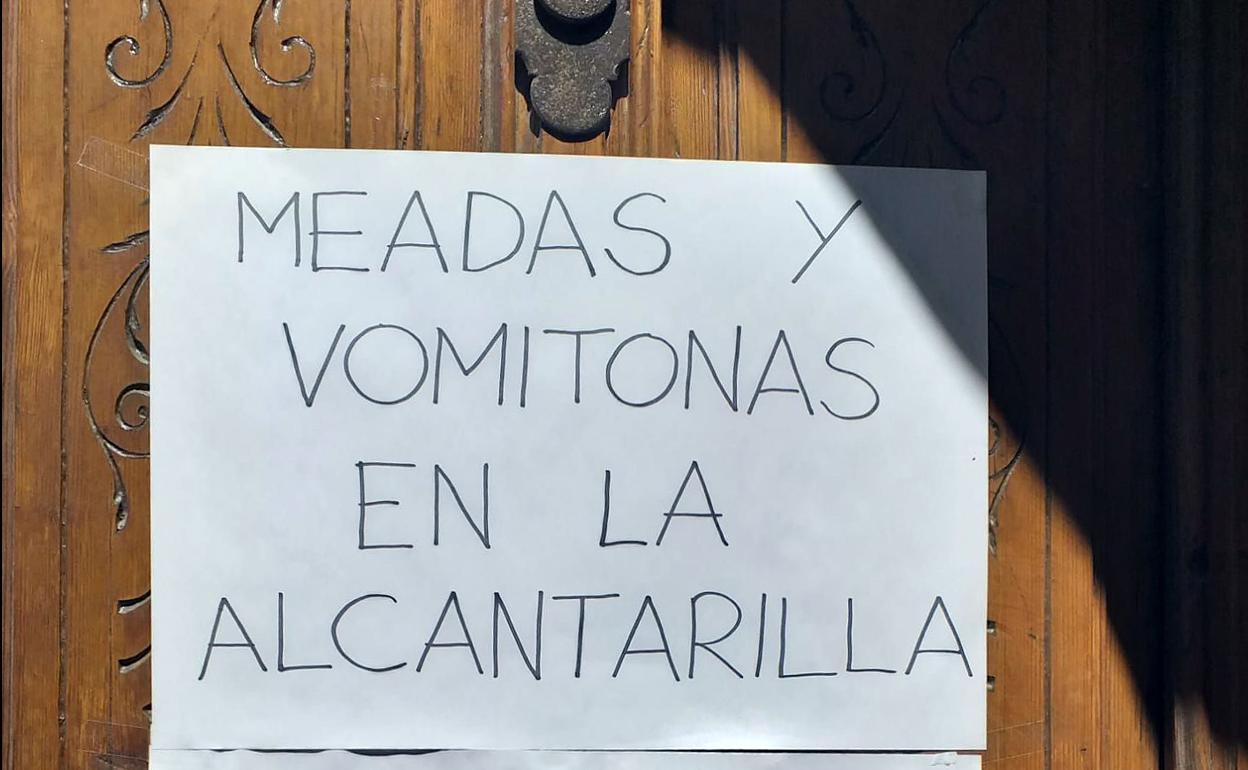 MEADAS Y
VOMITONAS
EN LA
ALCANTARILLA